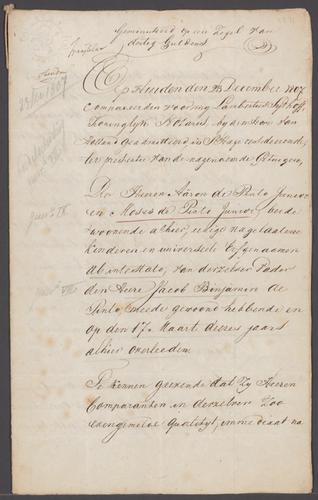 Geminuteerd op een Zegel van
dertig Guldens
Heeden den 23 December 1807
Compareerden voor my Lambertus
Koninglyk Notaris by den Hove van
Holland Geadmitteerd in S'Hage resideerende,
ter presentie van de nagenoemde Getuigen,
De Heeren Aäron de Pinto Junior
en Moses de Pinto Junior, beide
woonende alhier, eenige nagelaatene
kinderen en universeele Erfgenaamen
ab intestato, van derzelver Vader
den Heere Jacob Benjamin de
Pinto, meede gewoond hebbende en
op den 17e Maart deezes jaars
alhier overleeden.
Te kennen geevende dat zy Heeren
Comparanten in derzelver zoo
evengemelde qualiteyt, immediaat na